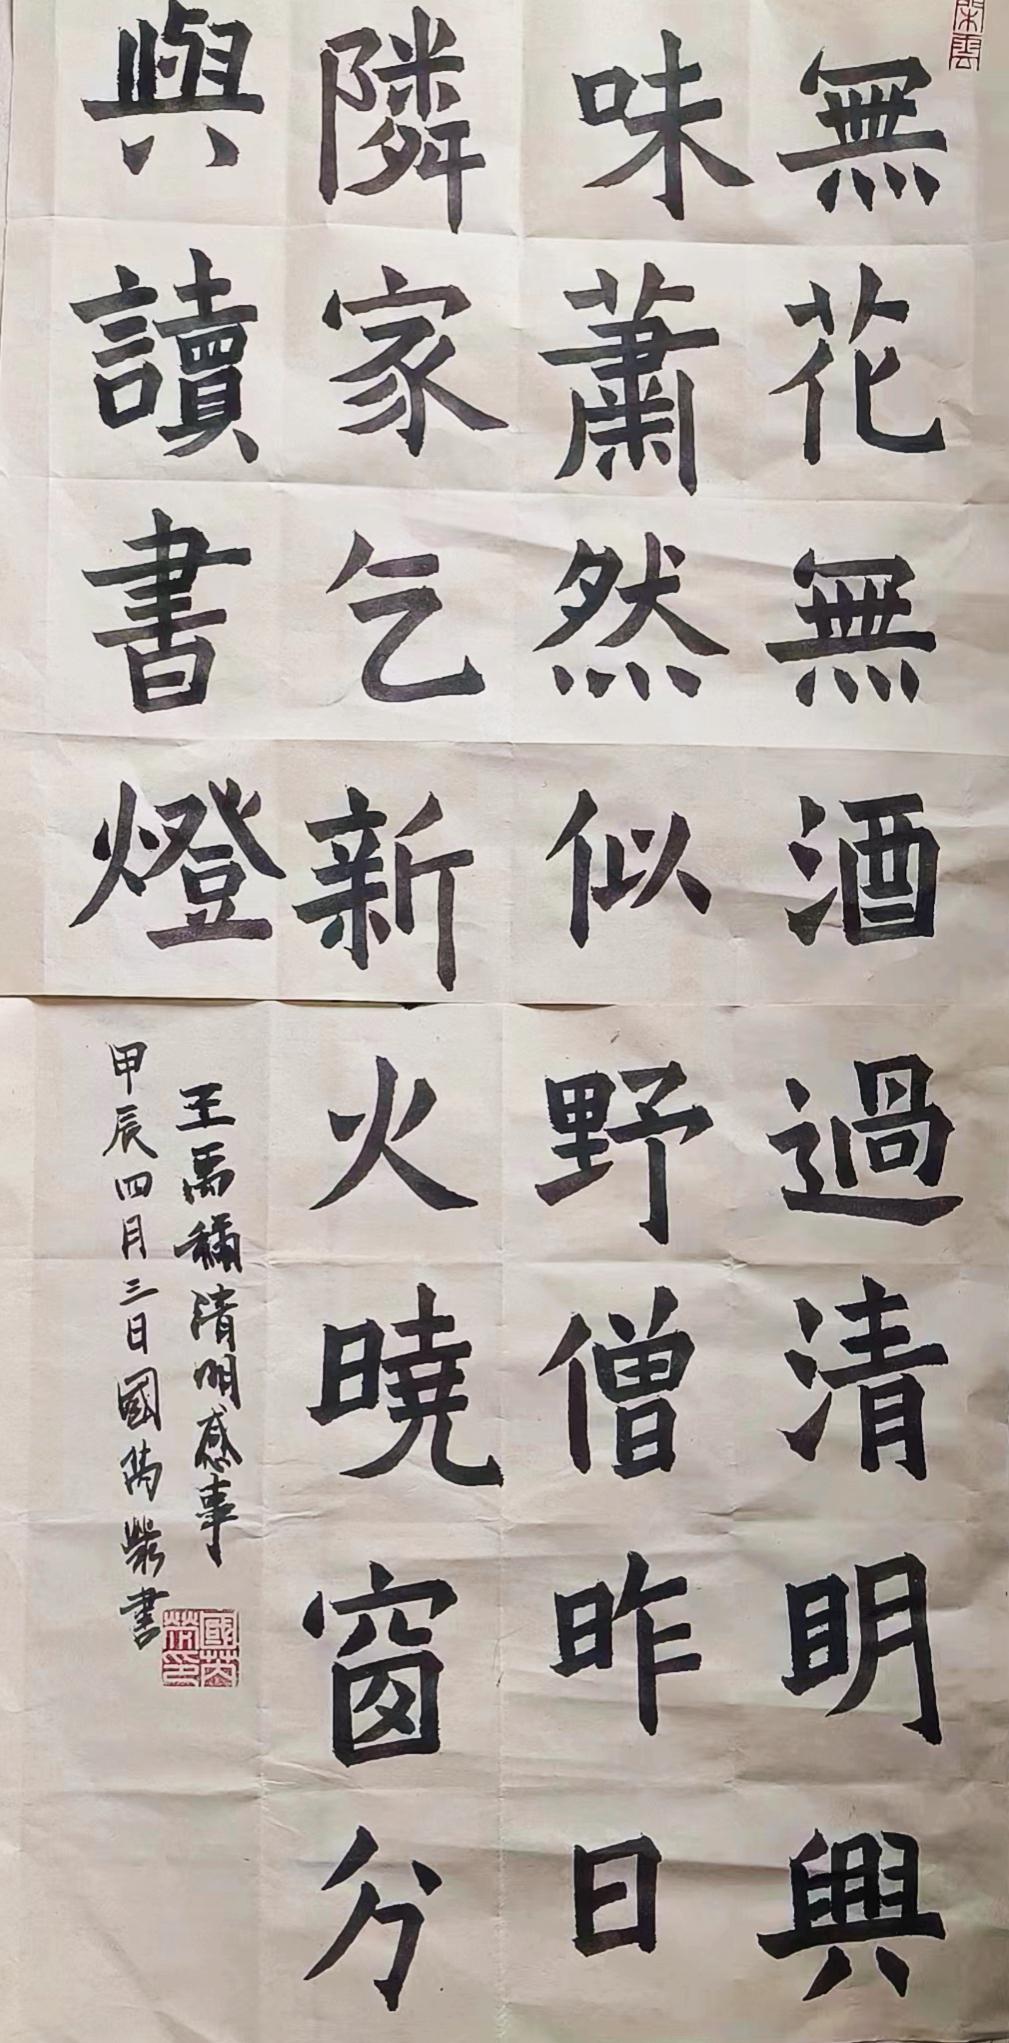 無花無酒過清明興
味蕭然似野僧昨日
隣家乞新火曉窗分
與讀書燈
王禹稱清明感事
甲辰四月三日國芮榮書
閑雲
國芮榮印